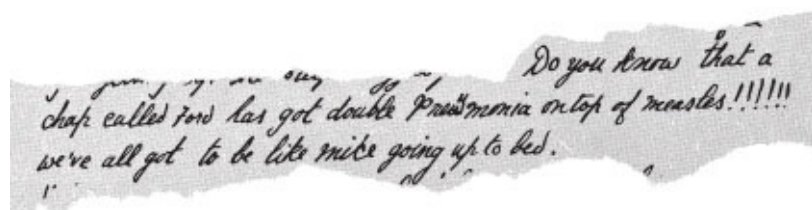 Do you know that a
chap called Ford has got double Pneumonia on top of measles!!!!!!
we've all got to be like mice going up to bed.